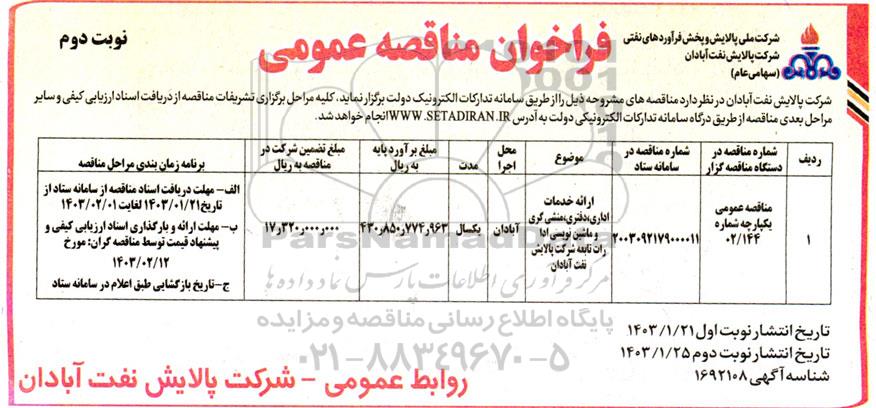 شرکت ملی پالایش و پخش فرآورده های نفتی
شرکت پالایش نفت آبادان
(سهامی عام)
فراخوان مناقصه عمومی
نوبت دوم
شرکت پالایش نفت آبادان در نظر دارد مناقصه های مشروحه ذیل را از طریق سامانه تدارکات الکترونیک دولت برگزار نماید. کلیه مراحل برگزاری تشریفات مناقصه از دریافت اسناد ارزیابی کیفی و سایر
مراحل بعدی مناقصه از طریق درگاه سامانه تدارکات الکترونیکی دولت به آدرس WWW.SETADIRAN.IR انجام خواهد شد.
ردیف
شماره مناقصه در
دستگاه مناقصه گزار
شماره مناقصه در
سامانه ستاد
موضوع
محل
اجرا
مدت
مبلغ برآورد پایه
به ریال
مبلغ تضمین شرکت در
مناقصه به ریال
برنامه زمان بندی مراحل مناقصه
۱
مناقصه عمومی
یکپارچه شماره
۰۲/۱۴۴
۲۰۰۳۰۹۲۱۷۹۰۰۰۰۱۱
ارائه خدمات
اداری،دفتری،منشی گری
و ماشین نویسی ادا
رات تابعه شرکت پالایش
نفت آبادان
آبادان
یکسال
۴۳۰٫۸۵۰٫۷۷۴٫۹۶۳
۱۷٫۳۲۰٫۰۰۰٫۰۰۰
الف- مهلت دریافت اسناد مناقصه از سامانه ستاد از
تاریخ ۱۴۰۳/۰۱/۲۱ لغایت ۱۴۰۳/۰۲/۰۱
ب- مهلت ارائه و بارگذاری اسناد ارزیابی کیفی و
پیشنهاد قیمت توسط مناقصه گران: مورخ
۱۴۰۳/۰۲/۱۲
ج- تاریخ بازگشایی طبق اعلام در سامانه ستاد
ParsNamadData
مرکز فرآوری اطلاعات پارس نماد داده ها
پایگاه اطلاع رسانی مناقصه و مزایده
۰۲۱-۸۸۳۴۹۶۷۰-۵
تاریخ انتشار نوبت اول ۱۴۰۳/۱/۲۱
تاریخ انتشار نوبت دوم ۱۴۰۳/۱/۲۵
شناسه آگهی ۱۶۹۲۱۰۸
روابط عمومی - شرکت پالایش نفت آبادان